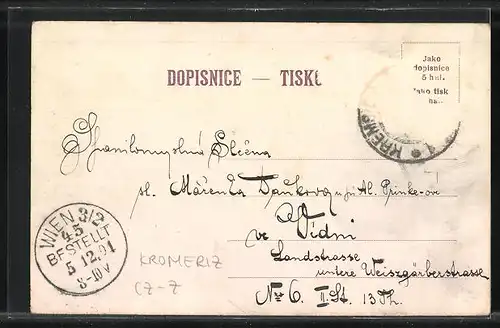 DOPISNICE — TISK
Jako
dopisnice
5 hal.
Jako tisk
KREMS
Slečna
sl. Mařenka
u p. Al. Prinke-ovi
ve Vídni
Landstrasse
untere Weiszgärberstrasse
No 6. II. St. 13 Th.
WIEN 3/2
45
BESTELLT
5.12.01
8-10V
KROMERIZ
CZ-7